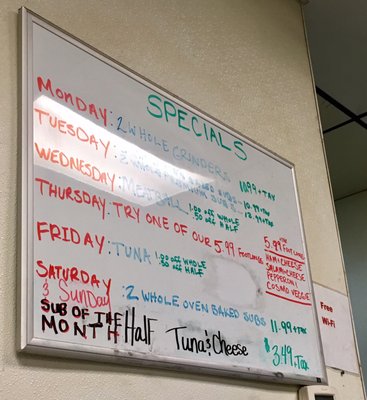 SPECIALS
MONDAY: 2 WHOLE GRINDERS 11.99 + TAX
TUESDAY: 2 WHOLE SUBS -- 10.99 + TAX
SUBS -- 12.99 + TAX
WEDNESDAY: MEATBALL 1.00 OFF WHOLE
.50 OFF HALF
THURSDAY: TRY ONE OF OUR 5.99 FOOTLONGS
5.99 + TAX
FOOTLONGS
HAM & CHEESE
SALAMI & CHEESE
PEPPERONI
COSMO VEGGIE
FRIDAY: TUNA 1.00 OFF WHOLE
.50 OFF HALF
SATURDAY
& SUNDAY : 2 WHOLE OVEN BAKED SUBS 11.99 + TAX
SUB OF THE
MONTH Half Tuna & Cheese $3.49 + TAX
Free
Wi-Fi